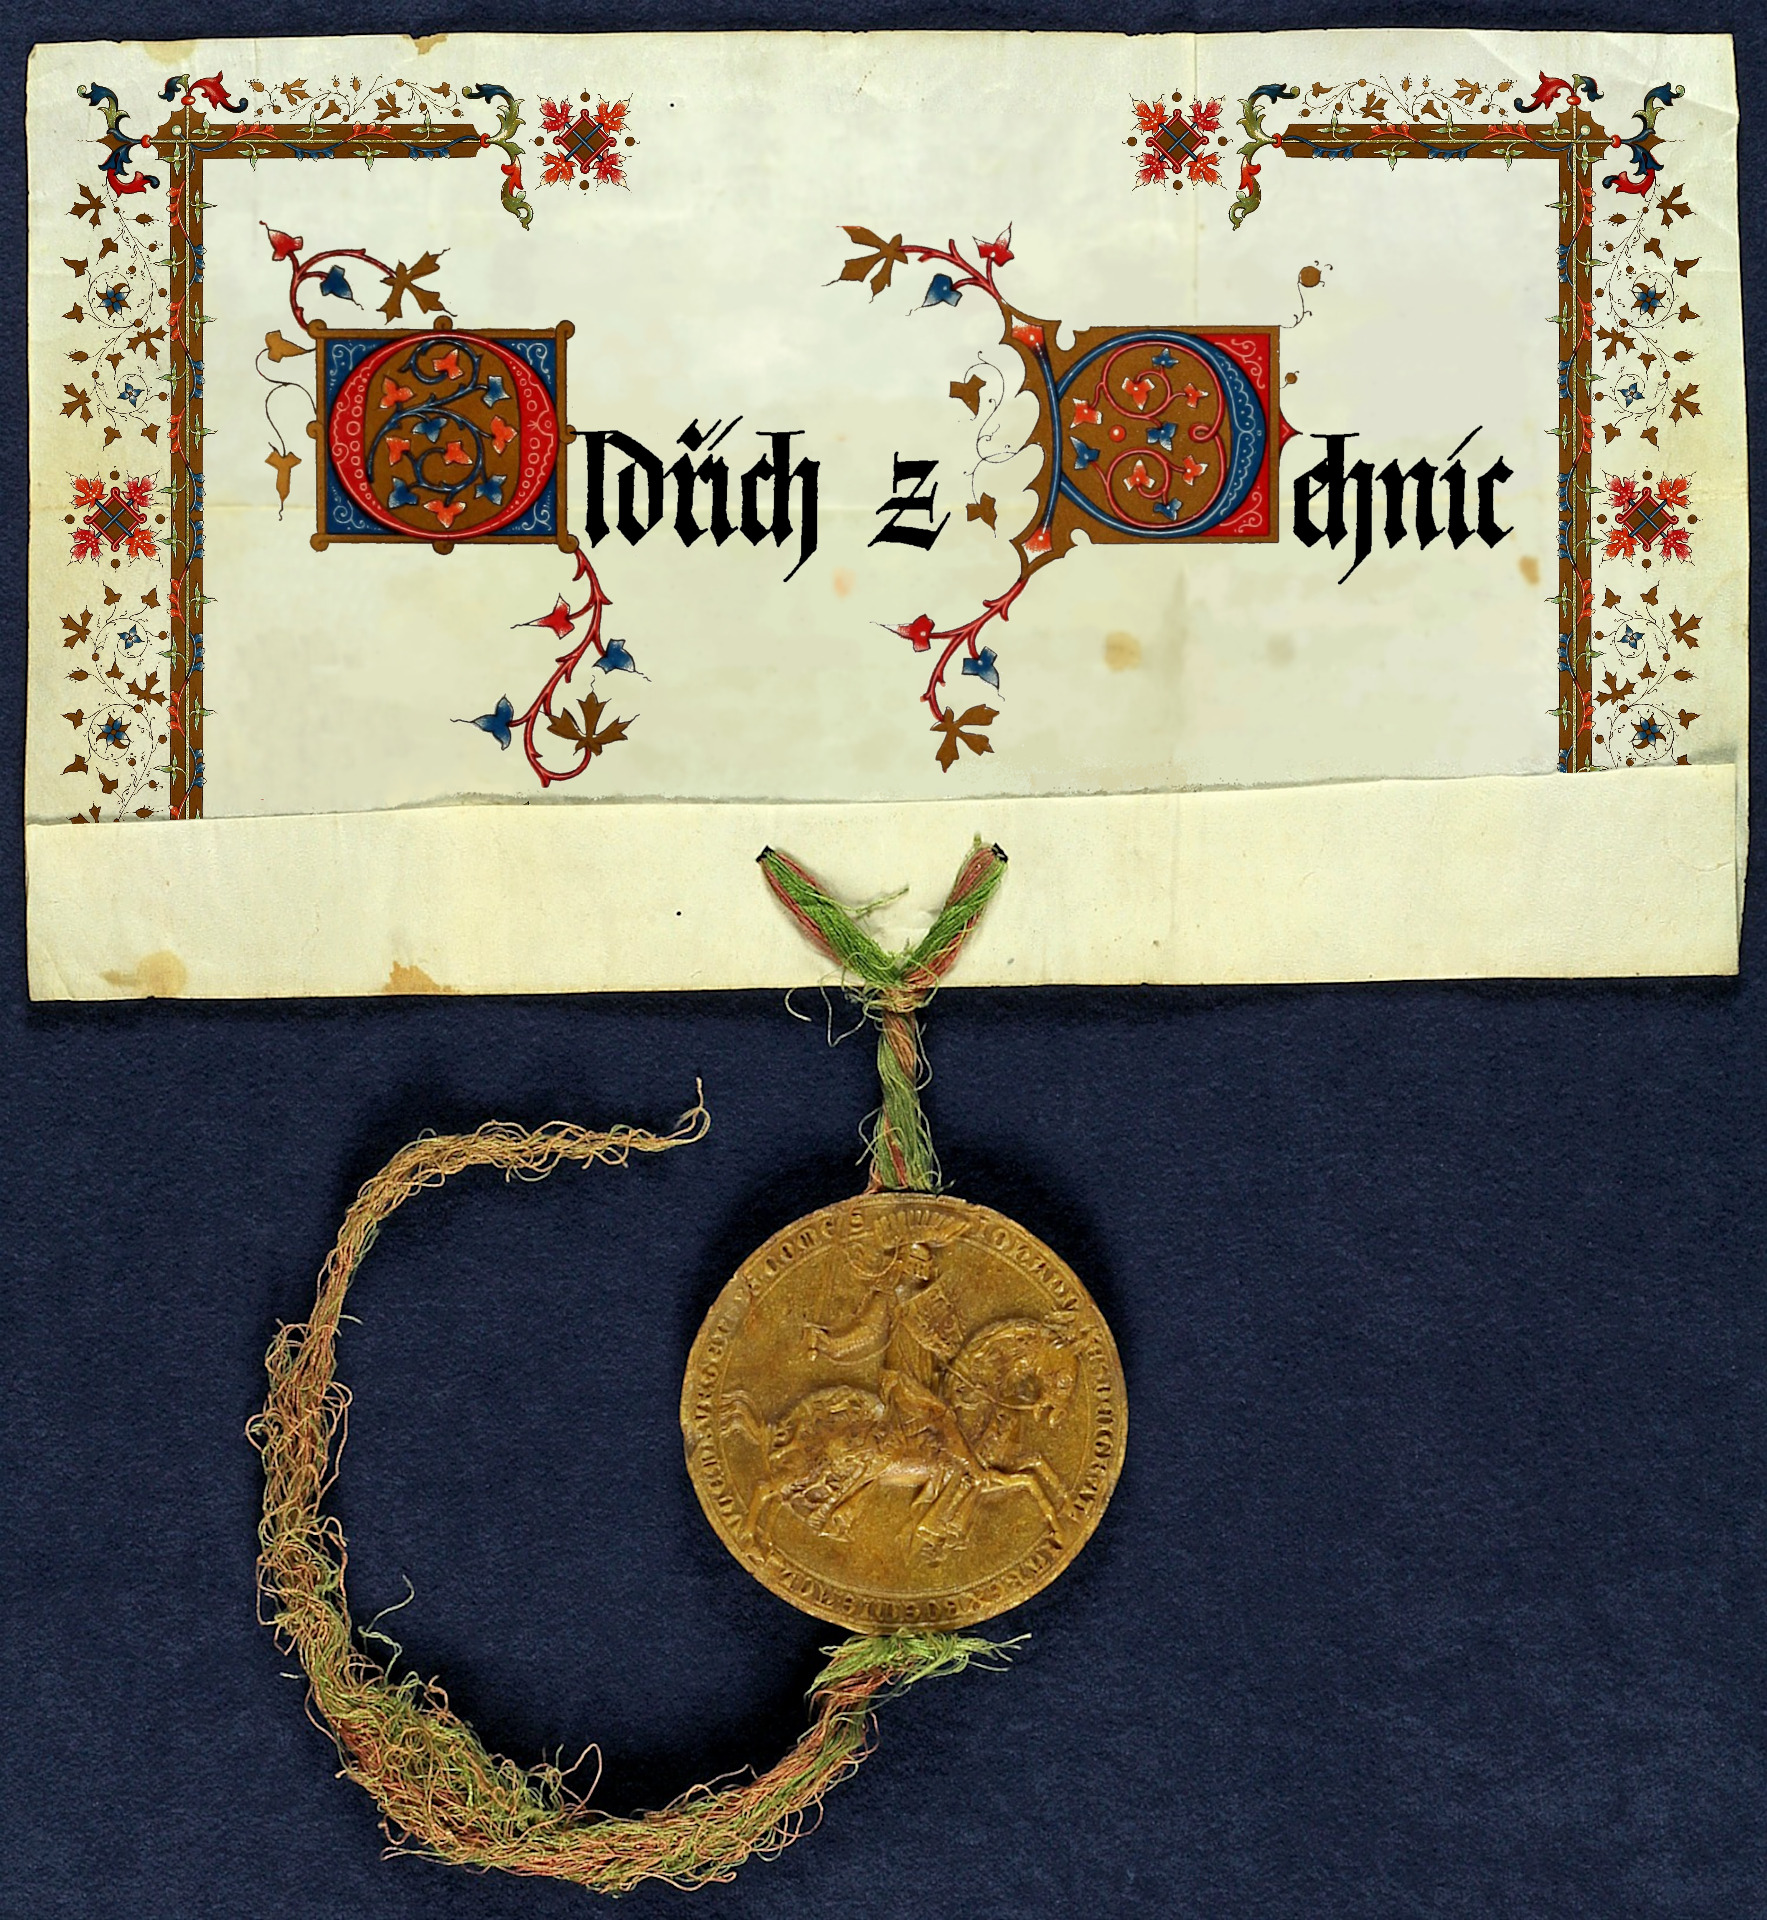 Oldřich z Dehnic